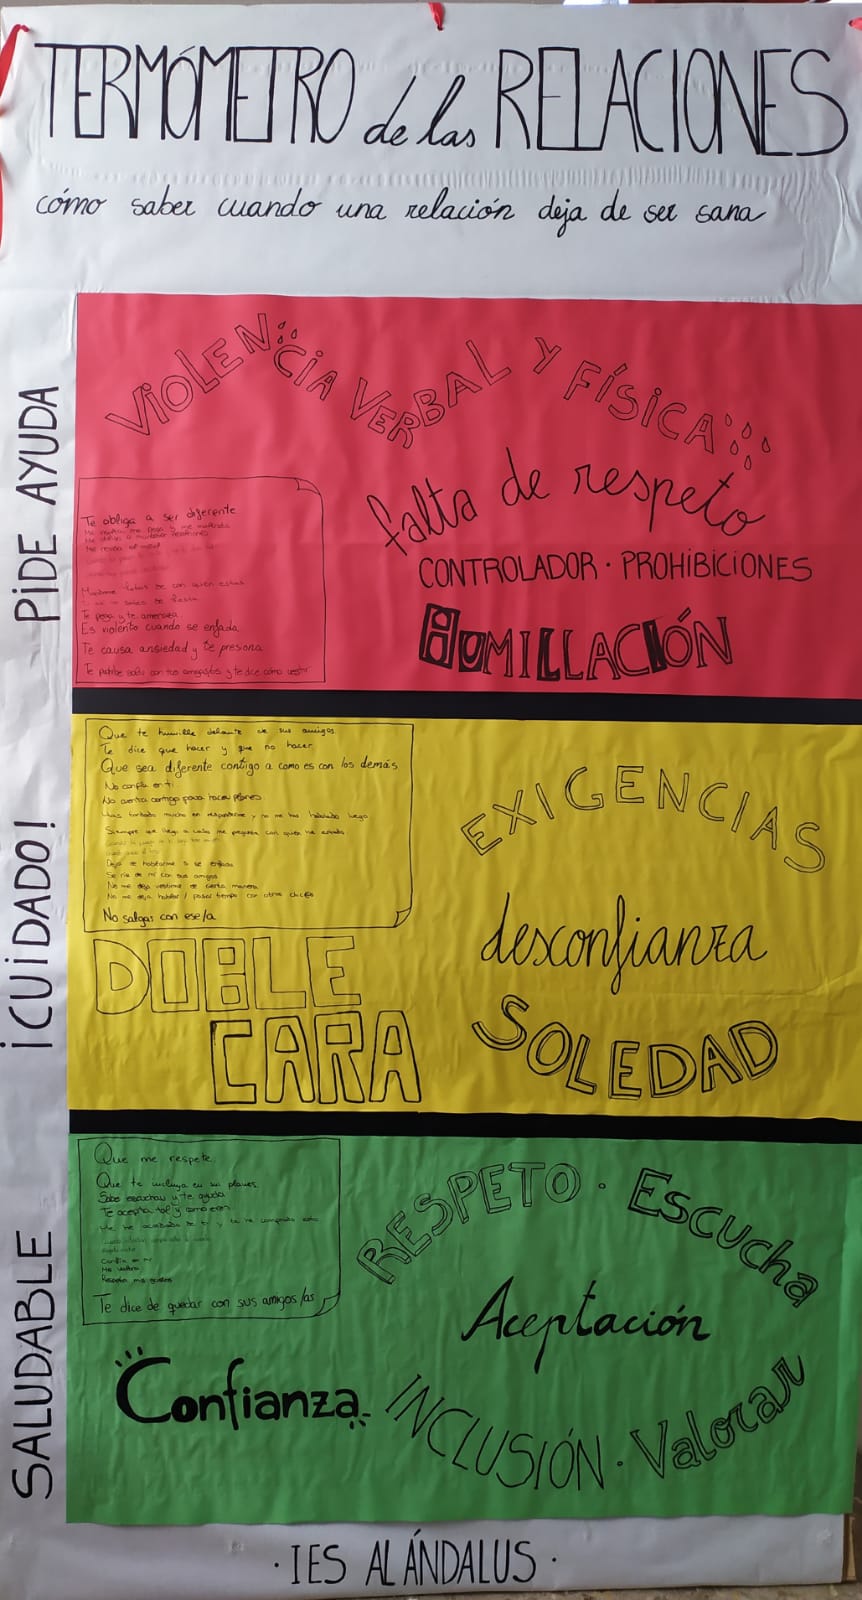 TERMÓMETRO de las RELACIONES
cómo saber cuando una relación deja de ser sana
PIDE AYUDA
VIOLENCIA VERBAL Y FÍSICA
falta de respeto
CONTROLADOR · PROHIBICIONES
HUMILLACIÓN
Te obliga a ser diferente
Me revisa el móvil
Te pega y te amenaza
Es violento cuando se enfada
Te causa ansiedad y te presiona
Te prohíbe salir con tus amigos/as y te dice cómo vestir
¡CUIDADO!
Que te humille delante de sus amigos
Te dice que hacer y que no hacer
Que sea diferente contigo a como es con los demás
No confía en ti
No cuenta contigo para hacer planes
Has tardado mucho en responderme y no me has hablado luego
Siempre que llego a casa me pregunta con quien he estado
Deja de hablarme si se enfada
Se ríe de mí con sus amigos
No me deja vestirme de cierta manera
No me deja hablar / pasar tiempo con otros chicos
No salgas con ese/a
EXIGENCIAS
desconfianza
SOLEDAD
DOBLE
CARA
SALUDABLE
Que me respete
Que te incluya en sus planes
Sabe escuchar y te ayuda
Te acepta tal y como eres
Confía en mí
Me valora
Respeta mis gustos
Te dice de quedar con sus amigos/as
RESPETO · Escucha
Aceptación
Confianza
INCLUSIÓN · Valorar
· IES AL ÁNDALUS ·